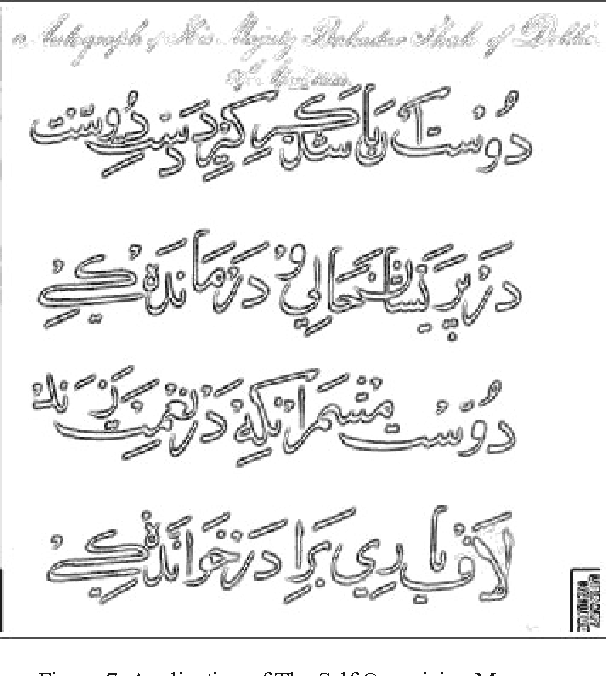 Autograph of His Majesty Bahadur Shah of Dehli
دوست آن باشد که گیرد دست دوست
در پریشانحالی و درماندگی
دوست مشمر آنکه در نعمت زند
لاف یاری برادر خواندگی
Figure 7: Application of The Self Organizing